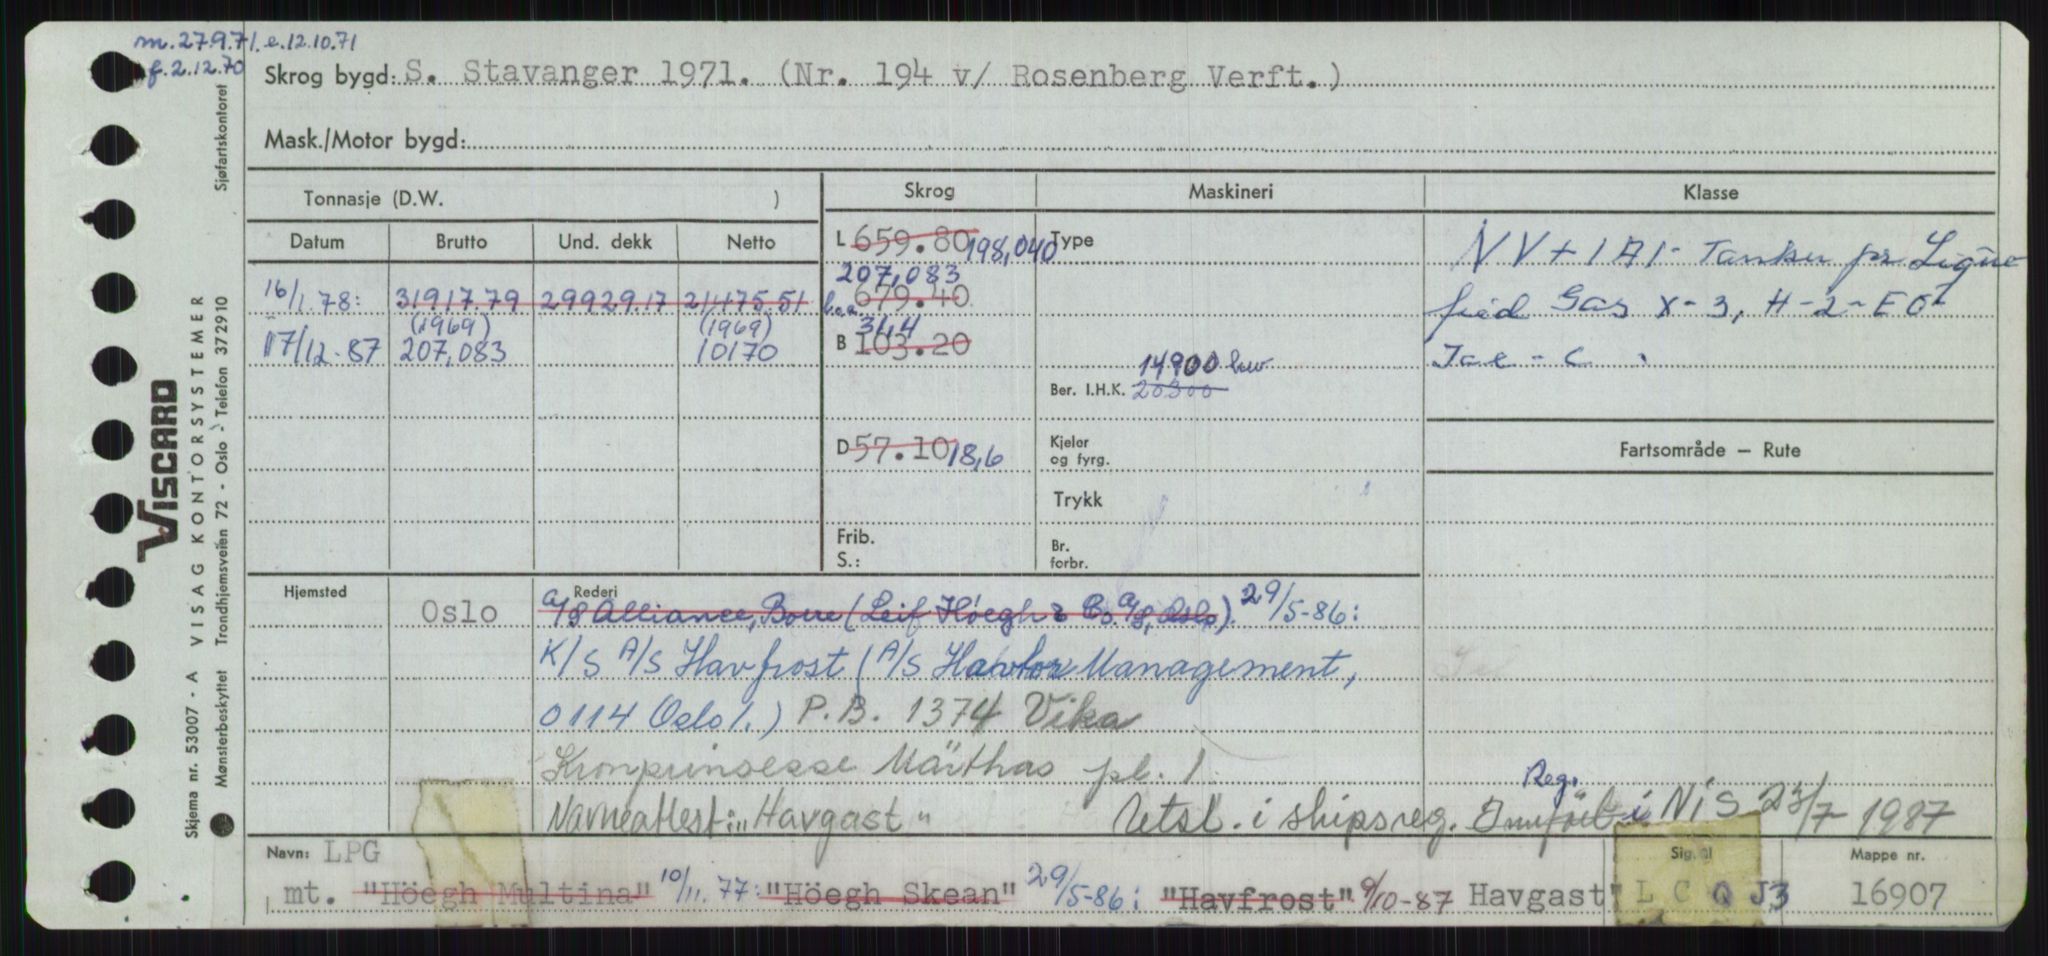 m. 27.9.71. e. 12.10.71
f. 2.12.70
Skrog bygd: S. Stavanger 1971. (Nr. 194 v/ Rosenberg Verft.)
Mask./Motor bygd:
Tonnasje (D.W. )
Skrog
Maskineri
Klasse
Datum
Brutto
Und. dekk
Netto
L 659.80 198,040
Type
NV + 1A1 - Tanker for Lique
207,083
16/1.78: 31917.79 29929.17 21475.51
l.o.a. 679.40
fied Gas X-3, H-2-EO
(1969) (1969)
31,4
17/12-87 207,083 10170
B 103.20
Ice - C .
14900 kw
Ber. I.H.K. 20300
D 57.10 18,6
Kjeler og fyrg.
Fartsområde — Rute
Trykk
Frib.
S.:
Br. forbr.
Hjemsted
Oslo
Rederi
A/S Alliance, Borre (Leif Höegh & Co. A/S, Oslo). 29/5-86:
K/S A/S Havfrost (A/S Havtor Management,
0114 Oslo 1.) P.B. 1374 Vika
Kronprinsesse Märthas pl. 1
Reg.
Navneattest: "Havgast" Utsl. i skipsreg. Innført i NIS 23/7 1987
Navn: LPG
Signal
Mappe nr.
mt. "Höegh Multina" 10/11.77: "Höegh Skean" 29/5-86: "Havfrost" 9/10-87 Havgast" L C Q J3 16907
Skjema nr. 53007 - A VISAG KONTORSYSTEMER Sjøfartskontoret
Mønsterbeskyttet Trondhjemsveien 72 - Oslo - Telefon 372910
VISCARD